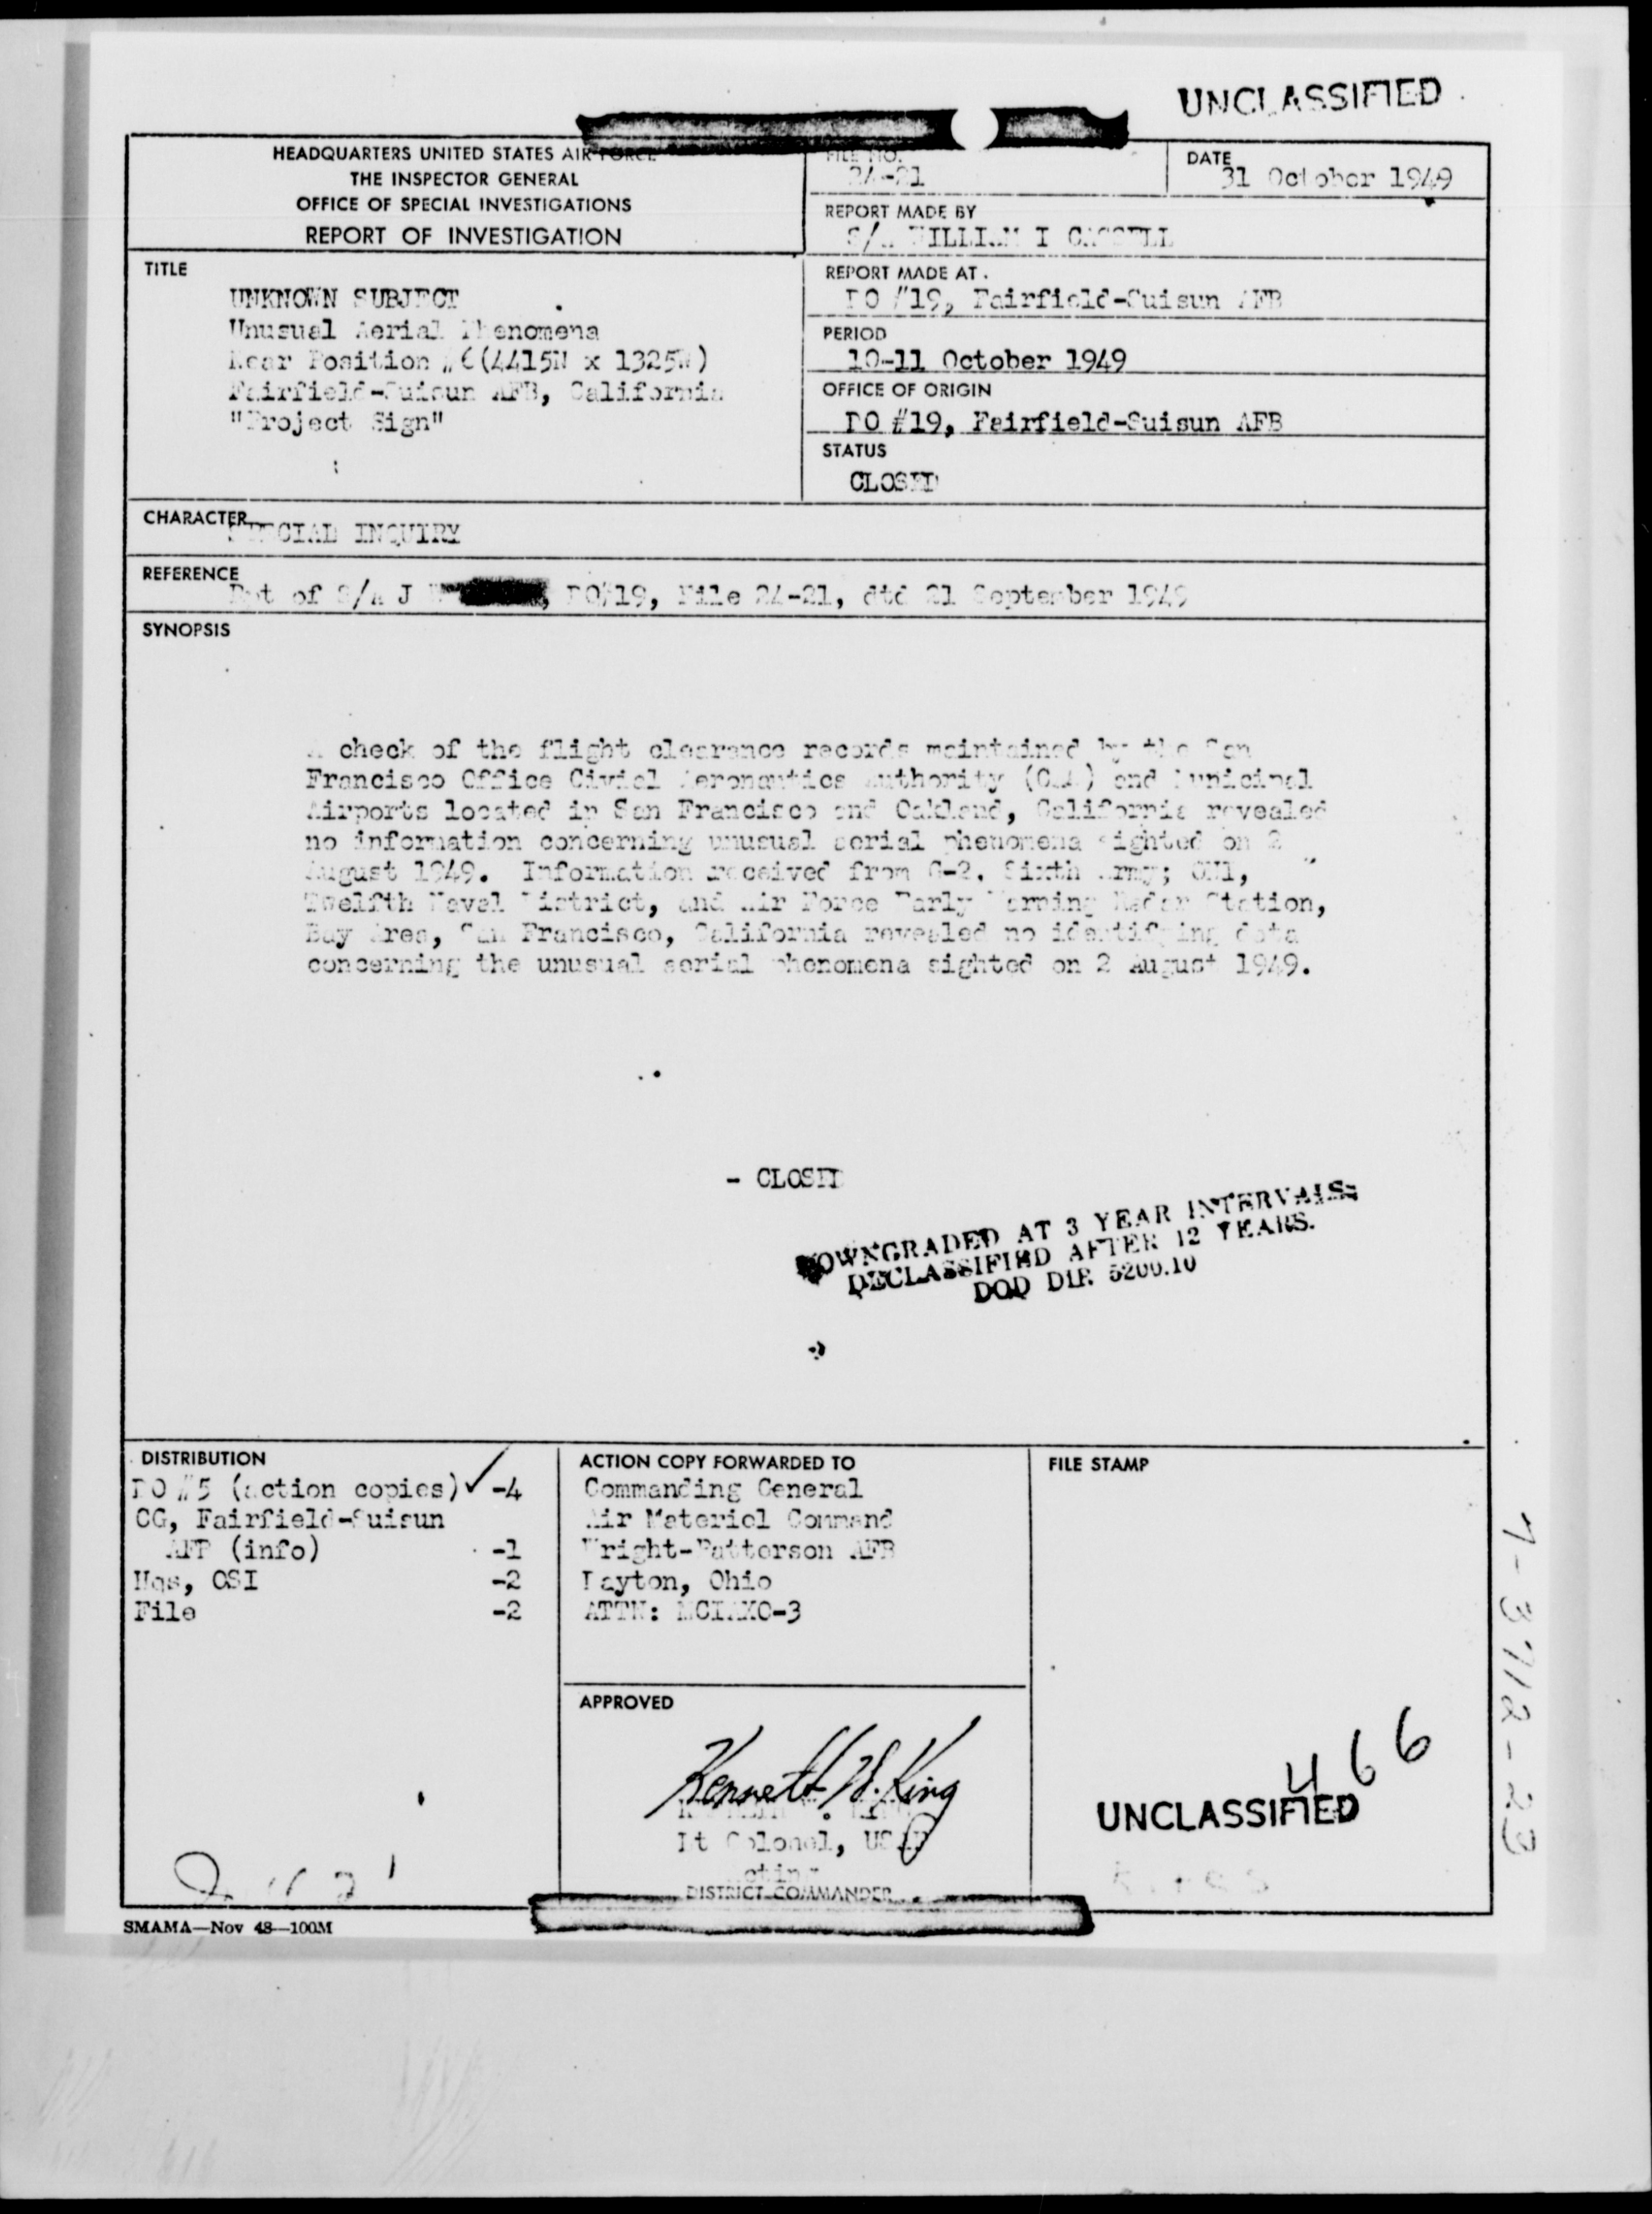 UNCLASSIFIED
HEADQUARTERS UNITED STATES AIR FORCE
THE INSPECTOR GENERAL
OFFICE OF SPECIAL INVESTIGATIONS
REPORT OF INVESTIGATION
FILE NO.
24-21
DATE
31 October 1949
REPORT MADE BY
S/A WILLIAM I CASSELL
TITLE
UNKNOWN SUBJECT
Unusual Aerial Phenomena
Near Position #6(4415N x 1325W)
Fairfield-Suisun AFB, California
"Project Sign"
REPORT MADE AT
DO #19, Fairfield-Suisun AFB
PERIOD
10-11 October 1949
OFFICE OF ORIGIN
DO #19, Fairfield-Suisun AFB
STATUS
CLOSED
CHARACTER
SPECIAL INQUIRY
REFERENCE
Rpt of S/A J DO#19, File 24-21, dtd 21 September 1949
SYNOPSIS
A check of the flight clearance records maintained by the San
Francisco Office Civial Aeronautics Authority (CAA) and Municipal
Airports located in San Francisco and Oakland, California revealed
no information concerning unusual aerial phenomena sighted on 2
August 1949. Information received from G-2, Sixth Army; ONI,
Twelfth Naval District, and Air Force Early Warning Radar Station,
Bay Area, San Francisco, California revealed no identifying data
concerning the unusual aerial phenomena sighted on 2 August 1949.
- CLOSED
DOWNGRADED AT 3 YEAR INTERVALS;
DECLASSIFIED AFTER 12 YEARS.
DOD DIR 5200.10
DISTRIBUTION
DO #5 (action copies) ✓ -4
CG, Fairfield-Suisun
AFB (info) -1
Hqs, OSI -2
File -2
ACTION COPY FORWARDED TO
Commanding General
Air Materiel Command
Wright-Patterson AFB
Dayton, Ohio
ATTN: MCIAXO-3
FILE STAMP
APPROVED
Kenneth W. King
KENNETH W. KING
Lt Colonel, USAF
Acting
DISTRICT COMMANDER
466
UNCLASSIFIED
7-3712-23
SMAMA—Nov 48—100M